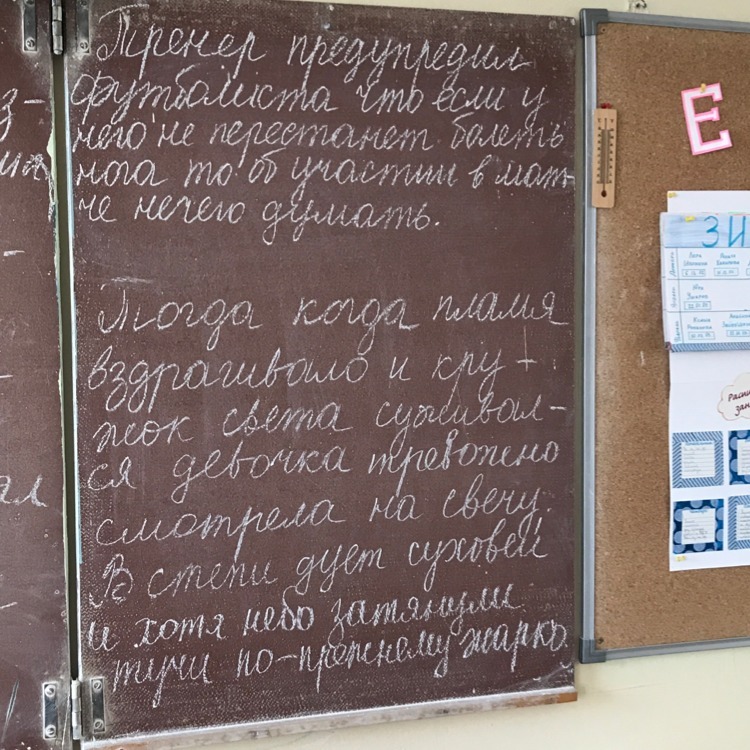 Тренер предупредил
футболиста что если у
него не перестанет болеть
нога то об участии в мат-
че нечего думать.
Тогда когда пламя
вздрагивало и кру-
жок света суживал-
ся девочка тревожно
смотрела на свечу.
В степи дует суховей
и хотя небо затянули
тучи по-прежнему жарко
Е
ЗИ